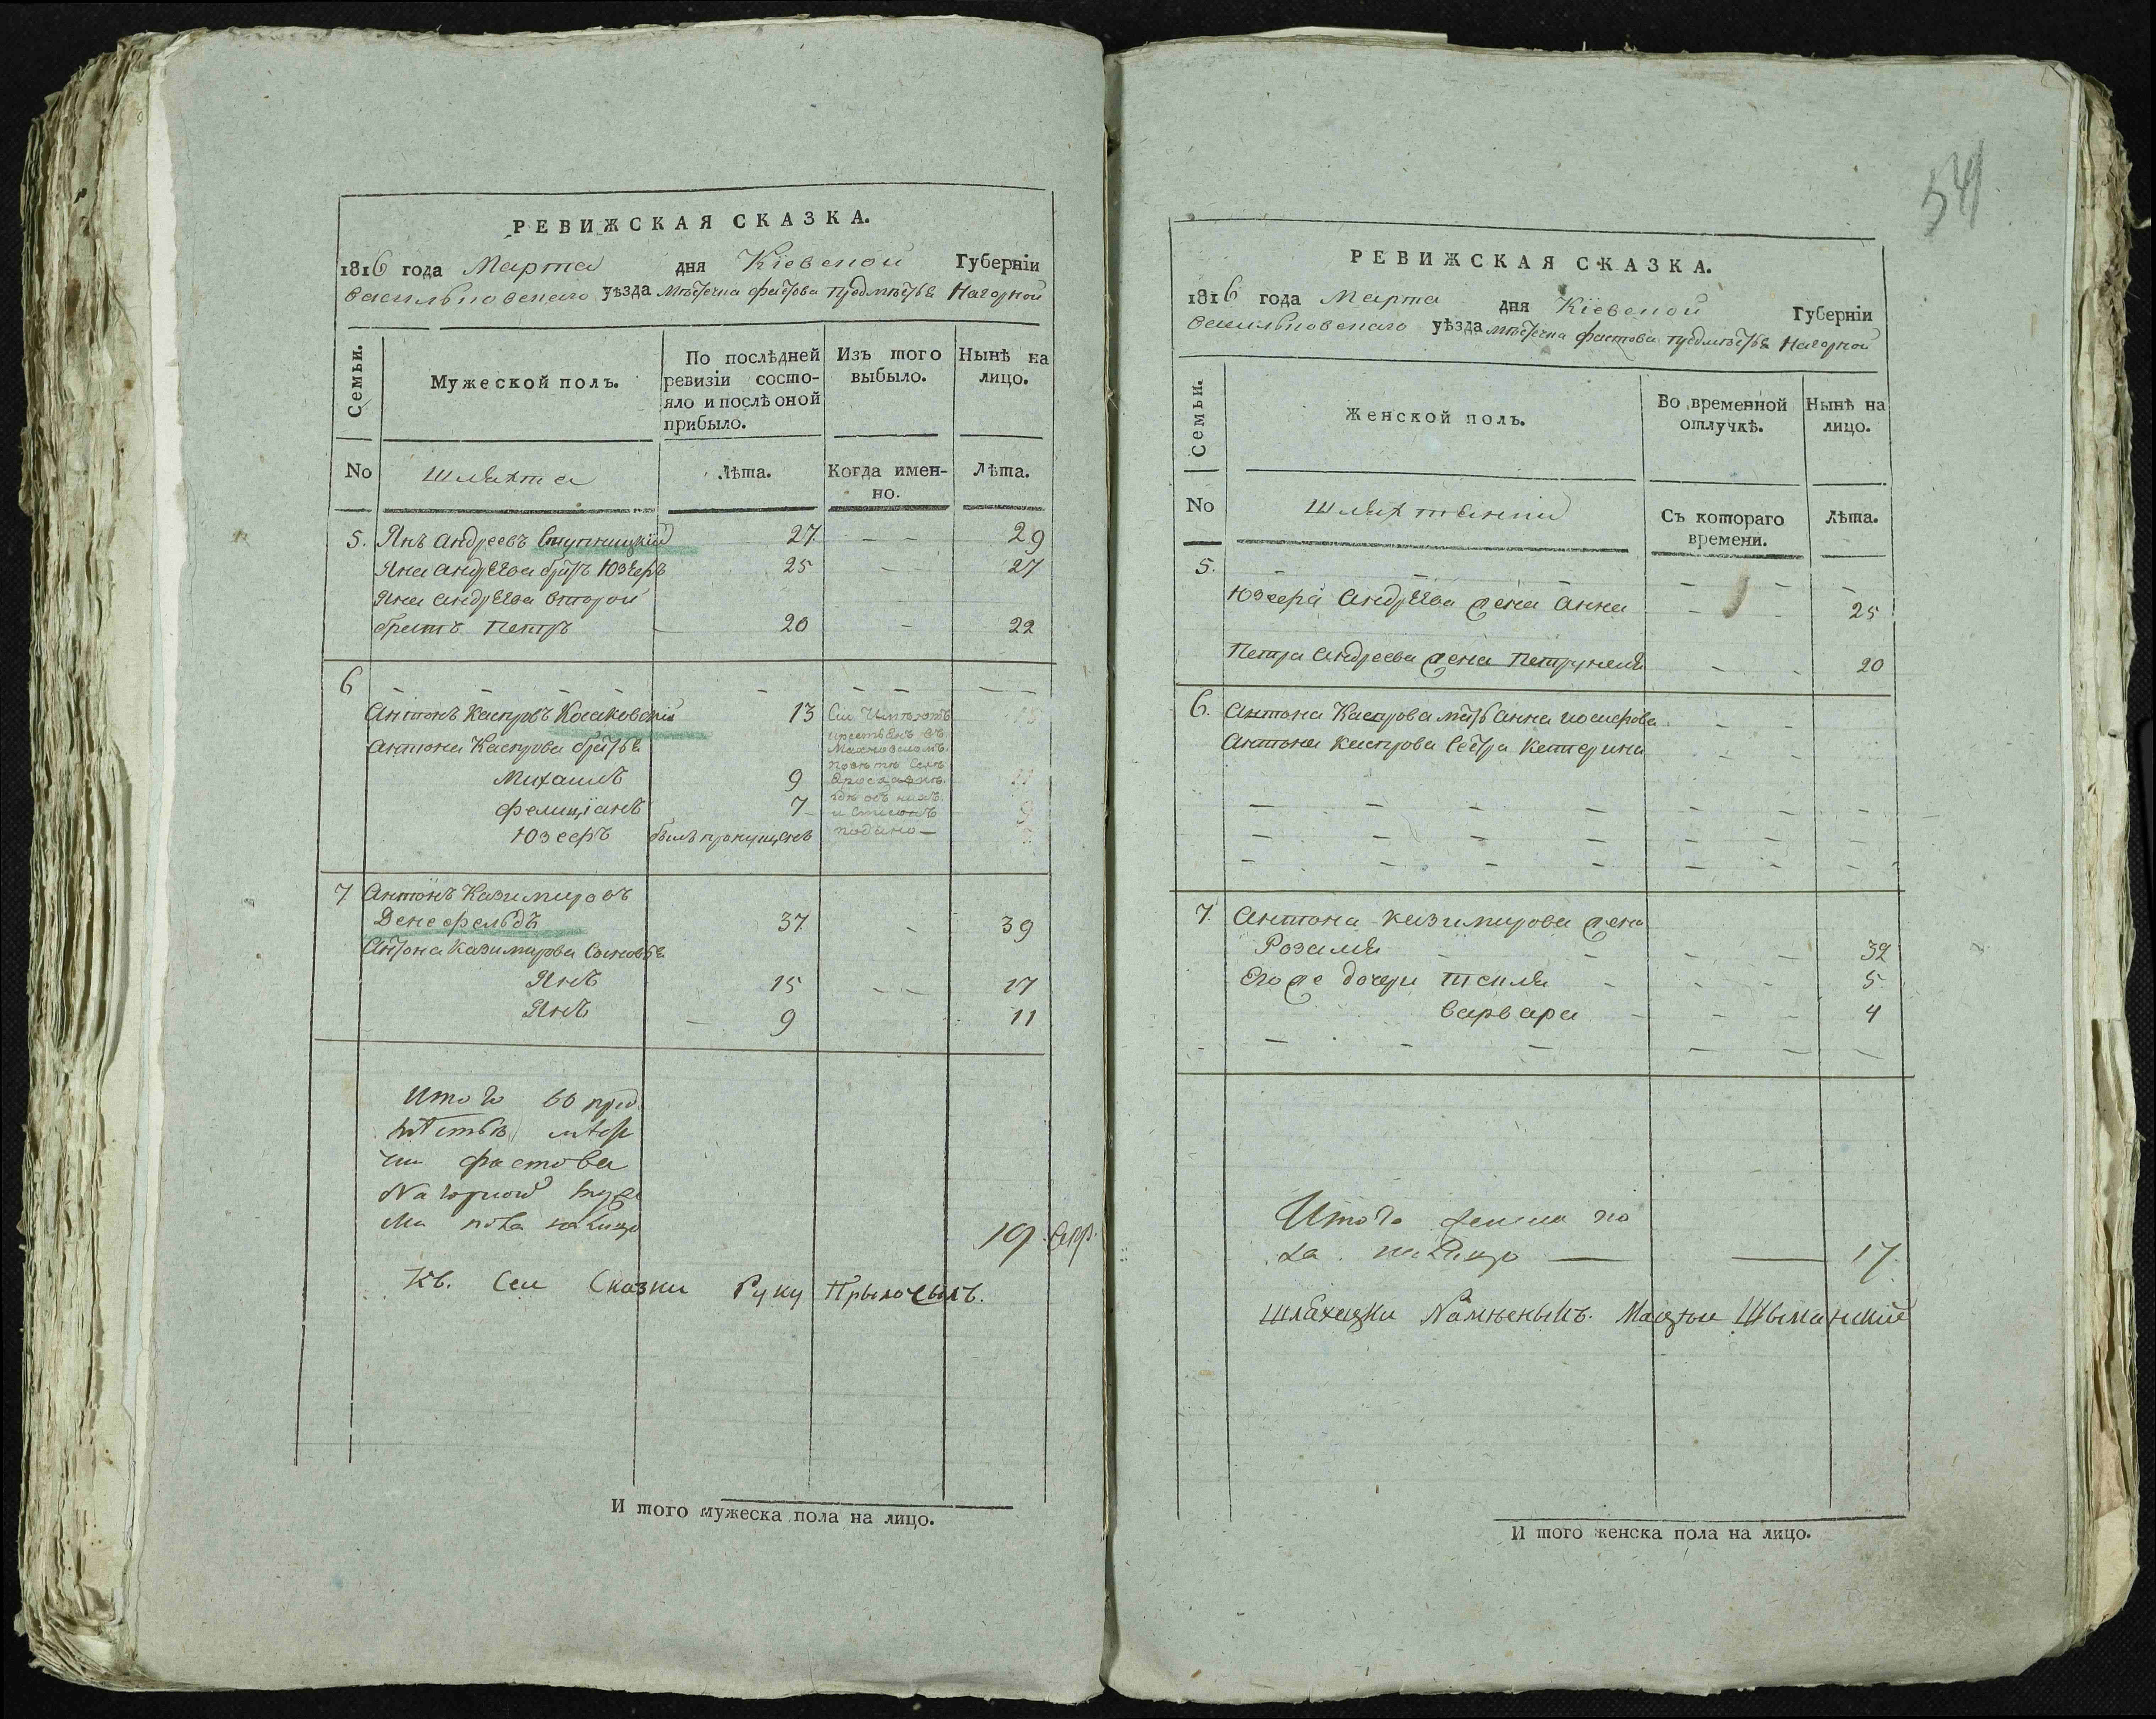 РЕВИЖСКАЯ СКАЗКА.
1816 года Марта дня Кіевской Губерніи
Васильковскаго уѣзда мѣстечка Фастова предмѣстья Нагорной
Семьи.
Мужеской полъ.
По послѣдней ревизіи состояло и послѣ оной прибыло.
Изъ того выбыло.
Нынѣ на лицо.
No Шляхта Лѣта. Когда именно. Лѣта.
5. Янъ Андреевъ Ступницкій 27 — — 29
Яна Андрѣева братъ Юзефъ 25 — 27
Яна Андрѣева второй
братъ Петръ — 20 — 22
6 — — — — — — — — —
Антонъ Каспровъ Косаковскій 13
Антона Каспрова братья
Михаилъ 9 11
Фелиціанъ 7 9
Юзефъ былъ пропущенъ
7 Антонъ Казимировъ
Денефельдъ 37 - 39
Антона Казимирова сыновья
Янъ 15 — — 17
Янъ — 9 11
Итого въ пред
мѣстьѣ мѣст
чка Фастова
Нагорной муже
ска пола на лицо 19
Къ. Сеи Сказки Руку Прыложылъ.
И того мужеска пола на лицо.
54
РЕВИЖСКАЯ СКАЗКА.
1816 года Марта дня Кіевской Губерніи
Васильковскаго уѣзда мѣстечка Фастова предмѣстья Нагорной
Семьи.
Женской полъ.
Во временной отлучкѣ.
Нынѣ на лицо.
No Шляхтянки Съ котораго времени. Лѣта.
5. — — — — — —
Юзефа Андрѣева жена Анна - - 25
Петра Андреева жена Петрунеля - - 20
6. Антона Каспрова мать Анна - -
Антона Каспрова сестра Катерина - -
— — — — — — — —
— — — — — — — —
— — — — — — — —
7. Антона Казимирова жена
Розалія - - - - 32
Его же дочери Текля - - - 5
Варвара - - - 4
— — — — — —
Итого женска по
ла на лицо — — 17.
И того женска пола на лицо.